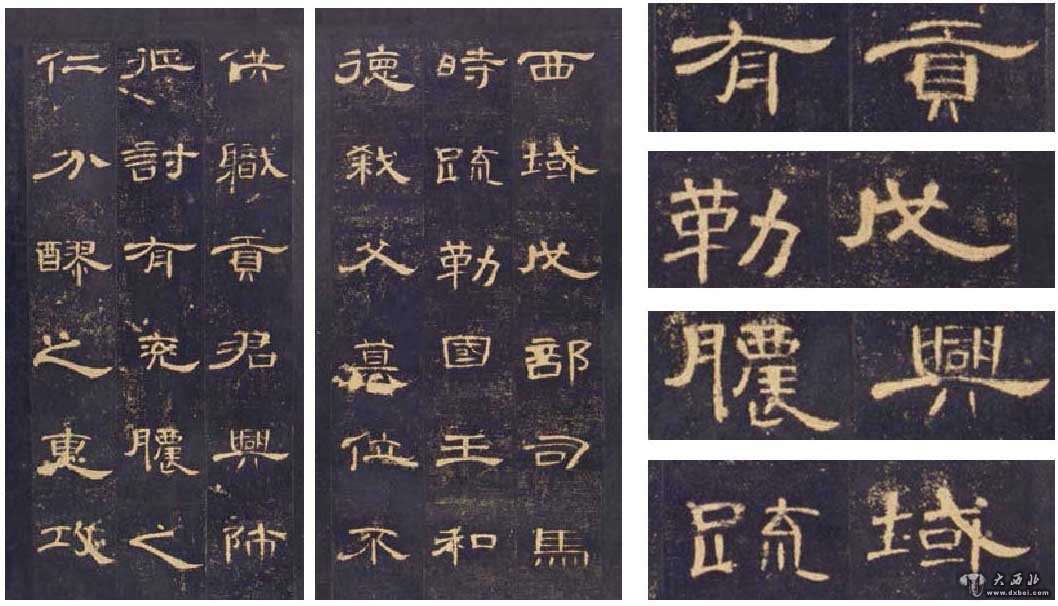 西域戊部司馬
時疏勒國王和
德弒父篡位不
供職貢君興師
征討有兗膿之
仁分醪之惠攻
貢有
戊勒
興膿
域疏
大西北
www.dxbei.com